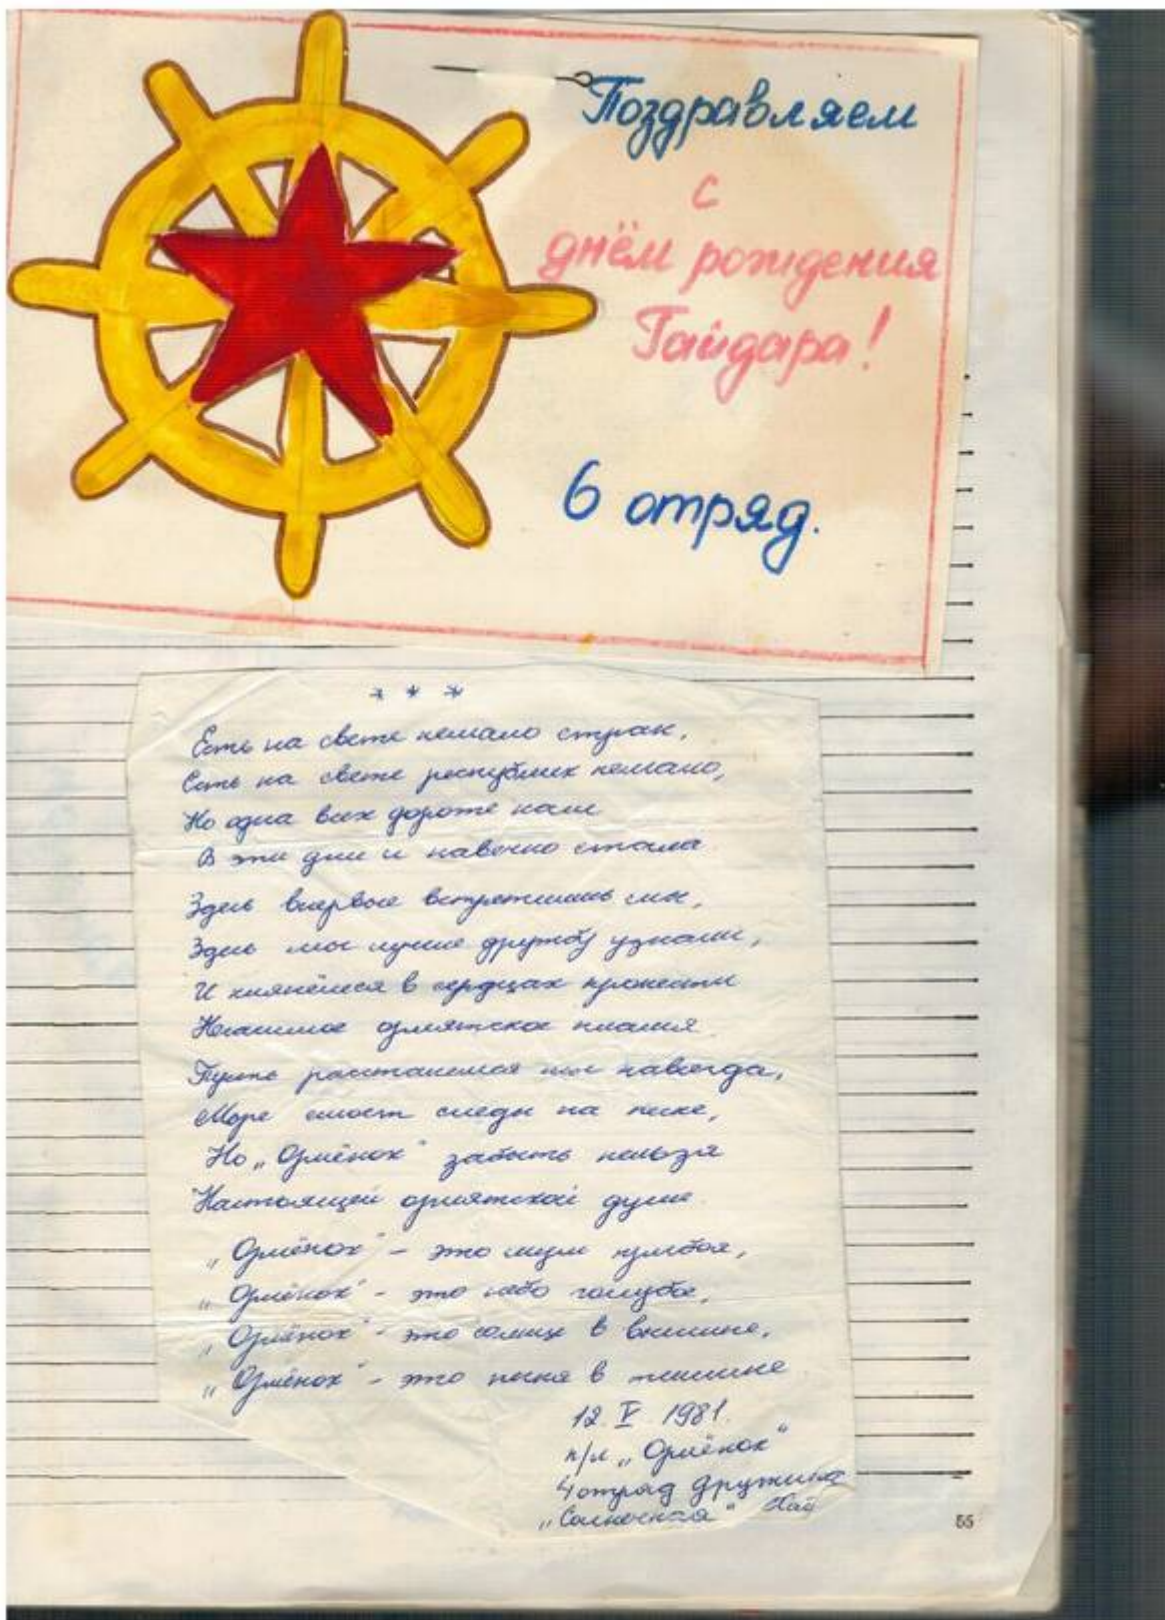 Поздравляем
с
днём рождения
Гайдара!
6 отряд.
* * *
Есть на свете немало стран,
Есть на свете республик немало,
Но одна всех дороже нам
В эти дни и навечно стала.
Здесь впервые встретились мы,
Здесь мы лучше дружбу узнали,
И клянёмся в сердцах пронести
Негасимое орлятское пламя.
Пусть расстанемся мы навсегда,
Море смоет следы на песке,
Но „Орлёнок" забыть нельзя
Настоящей орлятской душе.
„Орлёнок" - это шум прибоя,
„Орлёнок" - это небо голубое,
„Орлёнок" - это солнце в вышине,
„Орлёнок" - это песня в тишине.
12. V. 1981.
п/л „Орлёнок"
4 отряд дружина
„Солнечная"
55